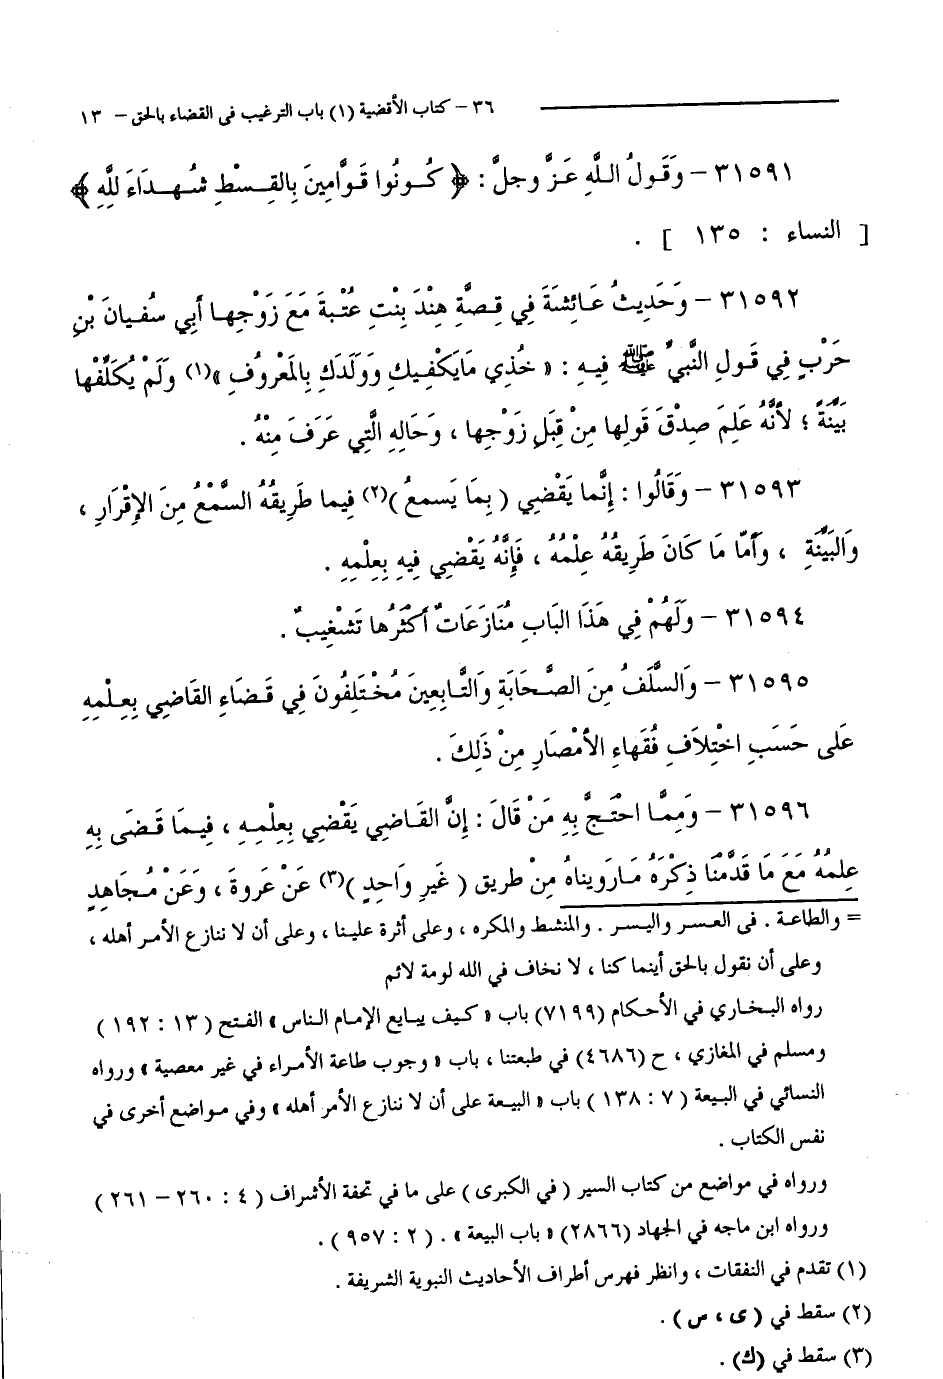 ٣٦ - كتاب الأقضية (١) باب الترغيب فى القضاء بالحق - ١٣
٣١٥٩١ - وَقَولُ اللَّهِ عَزَّ وجلَّ : ﴿ كُونُوا قَوَّامِينَ بِالقِسْطِ شُهدَاءَ لِلَّهِ ﴾
[ النساء : ١٣٥ ] .
٣١٥٩٢ - وَحَدِيثُ عَائِشَةَ فِي قِصَّةِ هِنْدَ بِنْتِ عُتْبةَ مَعَ زَوْجِها أَبِي سُفيانَ بْنِ
حَرْبٍ فِي قَولِ النَّبيِّ ﷺ فِيهِ : « خُذِي مَايَكْفِيكِ وَوَلَدَكِ بِالمَعْروُفِ »(١) ولَمْ يُكَلِّفْها
بَيِّنَةً ؛ لأَنَّهُ عَلِمَ صِدْقَ قَولِها مِنْ قِبَلِ زَوْجِها ، وَحَالِهِ الَّتِي عَرَفَ مِنْهُ .
٣١٥٩٣ - وَقَالُوا : إِنَّما يَقْضِي ( بِمَا يَسمعُ )(٢) فِيما طَرِيقُهُ السَّمْعُ مِنَ الإِقْرَارِ ،
وَالبَيِّنَةِ ، وأَمَّا مَا كَانَ طَرِيقُهُ عِلْمُهُ ، فَإِنَّهُ يَقْضِي فِيهِ بِعِلْمِهِ .
٣١٥٩٤ - وَلَهُمْ فِي هَذَا البَابِ مُنَازَعَاتٌ أَكْثَرُها تَشْغِيبٌ .
٣١٥٩٥ - وَالسَّلَفُ مِنَ الصَّحَابَةِ وَالتَّابِعِينَ مُخْتَلِفُونَ فِي قَضَاءِ القَاضِي بِعِلْمِهِ
عَلى حَسَبِ اخْتِلاَفِ فُقَهاءِ الأَمْصَارِ مِنْ ذَلِكَ .
٣١٥٩٦ - وَمِمَّا احْتَجَّ بِهِ مَنْ قَالَ : إِنَّ القَاضِي يَقْضِي بِعِلْمِهِ ، فِيمَا قَضَى بِهِ
عِلمُهُ مَعَ مَا قَدَّمْنَا ذِكْرَهُ مَارَويناهُ مِنْ طريق ( غَيرِ وَاحِدٍ )(٣) عَنْ عَروةَ ، وَعَنْ مُجَاهِدٍ
= والطاعة . فى العسر واليسر . والمنشط والمكره ، وعلى أثرة علينا ، وعلى أن لا ننازع الأمر أهله ،
وعلى أن نقول بالحق أينما كنا ، لا نخاف في الله لومة لائم
رواه البخاري في الأحكام (٧١٩٩) باب « كيف يبايع الإمام الناس » الفتح ( ١٣ : ١٩٢ )
ومسلم في المغازي ، ح (٤٦٨٦) في طبعتنا ، باب « وجوب طاعة الأمراء في غير معصية » ورواه
النسائي في البيعة ( ٧ : ١٣٨ ) باب « البيعة على أن لا ننازع الأمر أهله » وفي مواضع أخرى في
نفس الكتاب .
ورواه في مواضع من كتاب السير ( في الكبرى ) على ما في تحفة الأشراف ( ٤ : ٢٦٠ - ٢٦١ )
ورواه ابن ماجه في الجهاد (٢٨٦٦) « باب البيعة » . ( ٢ : ٩٥٧ ) .
(١) تقدم في النفقات ، وانظر فهرس أطراف الأحاديث النبوية الشريفة .
(٢) سقط في ( ى ، س ) .
(٣) سقط في (ك) .